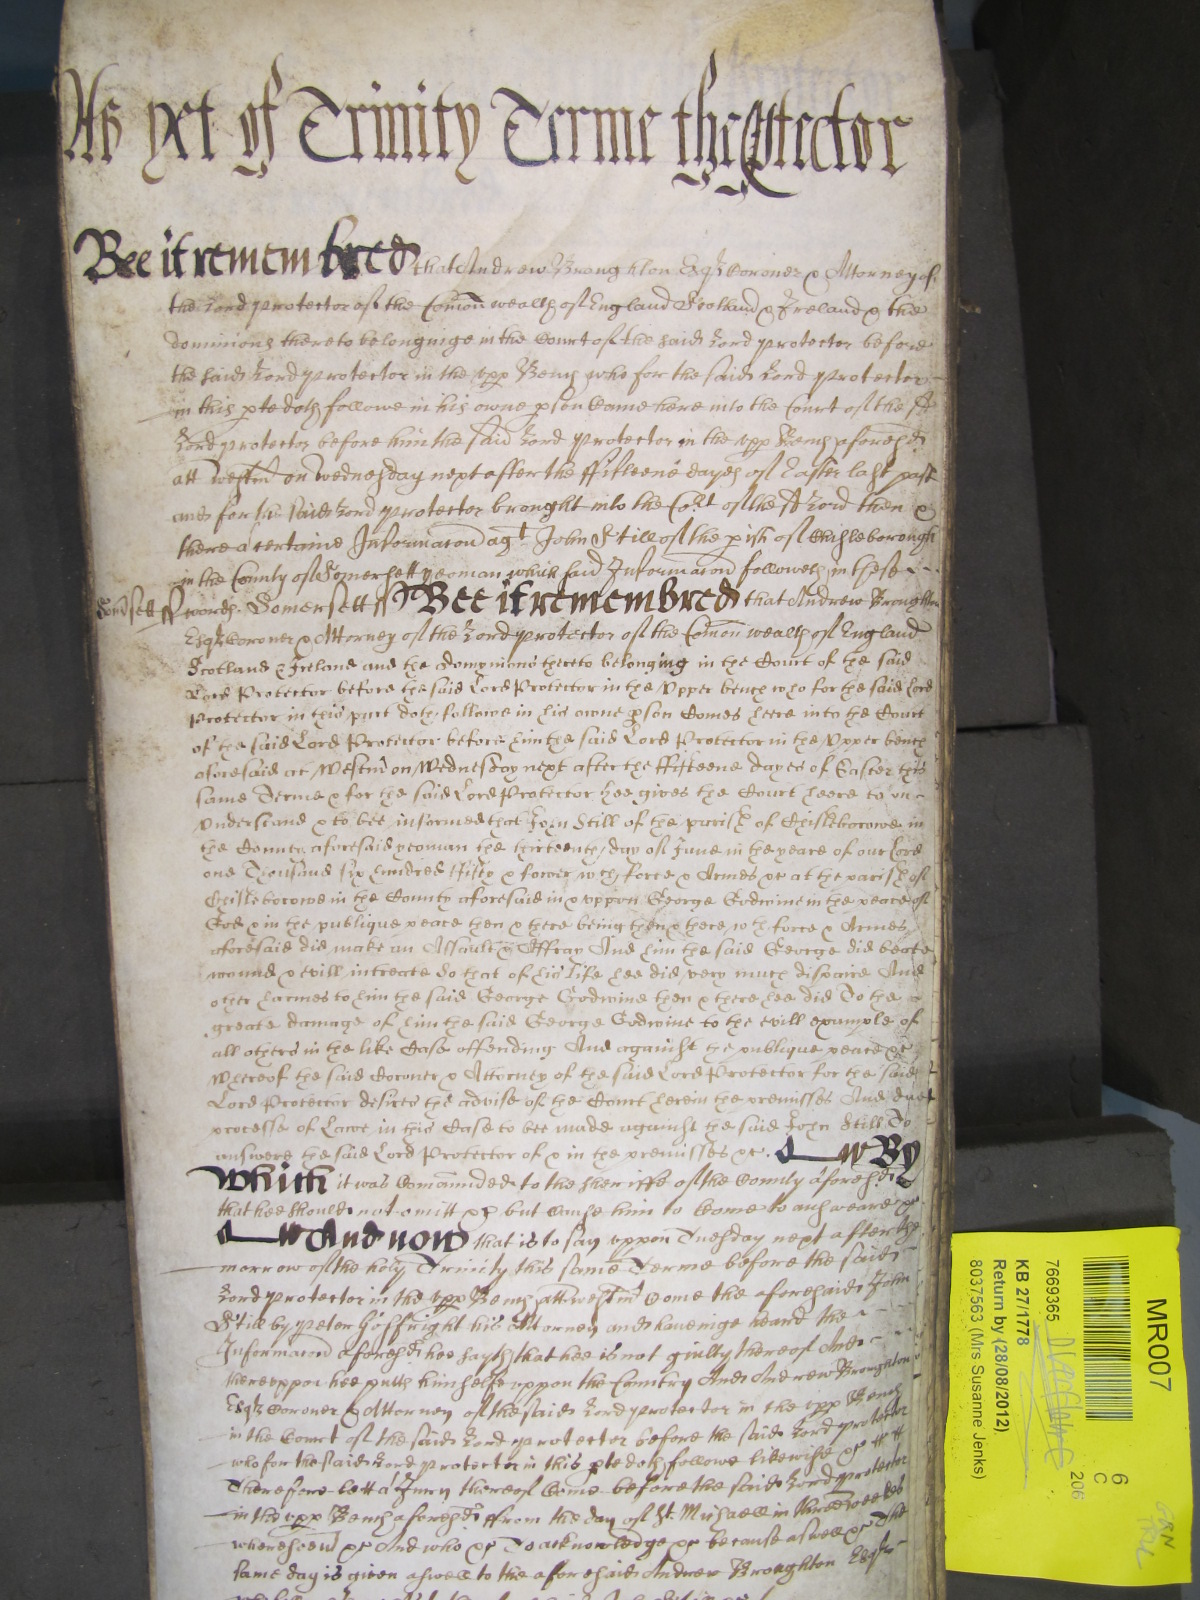 As yet of Trinity Terme the Ptector
Bee it remembred that Andrew Broughton Esqr Coroner & Attorney of
the Lord Protector of the Comon wealth of England Scotland & Ireland & the
dominions thereto belonginge in the Court of the said Lord Protector before
the said Lord Protector in the upp Bench who for the said Lord Protector
in this pte doth followe in his owne pson Came here into the Court of the sd
Lord Protector before him the said Lord Protector in the upp Bench aforesd
att Westm on Wednesday next after the ffifteene dayes of Easter last past
and for the said Lord Protector brought into the Cort of the sd Lord then &
there a certaine Informacon agt John Still of the pish of Chisleborough
in the County of Somersett yeoman which said Informacon followeth in these
Somsett ss words Somersett ss Bee it remembred that Andrew Broughton
Esqr Coroner & Attorney of the Lord Protector of the Comon wealth of England
Scotland & Ireland and the Dominions thereto belonging in the Court of the said
Lord Protector before the said Lord Protector in the Upper bench who for the said Lord
Protector in this part doth followe in his owne pson Comes heere into the Court
of the said Lord Protector before him the said Lord Protector in the Upper bench
aforesaid at Westm on Wednesday next after the ffifteene dayes of Easter this
same Terme & for the said Lord Protector hee gives the Court heere to un
derstand & to bee informed that John Still of the parish of Chisleborowe in
the County aforesaid yeoman the thirteenth day of June in the yeare of our Lord
one Thousand six hundred fifty & fower with force & Armes &c at the parish of
Chisleborowe in the County aforesaid in & uppon George Godwine in the peace of
God & in the publique peace then & there being then & there wth force & Armes
aforesaid did make an Assault & Affray And him the said George did beate
wound & evill intreate So that of his life hee did very much dispaire And
other harmes to him the said George Godwine then & there hee did To the
greate damage of him the said George Godwine to the evill example of
all others in the like Case offending And against the publique peace &c
Whereof the said Coroner & Attorney of the said Lord Protector for the said
Lord Protector desires the advise of the Court herein the premisses And due
processe of Lawe in this Case to bee made against the said John Still To
answere the said Lord Protector of & in the premisses &c. By
Which it was Comaunded to the Sheriffe of the County aforesd
that hee should not omitt &c but Cause him to Come to answeare &c
And now that is to say uppon Tuesday next after the
morrow of the holy Trinity this same Terme before the said
Lord Protector in the upp Bench att Westm Come the aforesaid John
Still by Peter his Attorney and haveinge heard the
Informacon aforesd hee sayth that hee is not guilty thereof And
thereuppon hee putts himselfe uppon the Country And Andrew Broughton
Esqr Coroner & Attorney of the said Lord Protector in the upp Bench
in the Court of the said Lord Protector before the said Lord Protector
who for the said Lord Protector in this pte doth followe likewise &c
Therefore lett a Jury thereof Come before the said Lord Protector
in the upp Bench aforesd ffrom the day of St Michaell in three weekes
whereseen &c And who &c To acknowledge &c because aswell &c The
same day is given aswell to the aforesaid Andrew Broughton Esqr
MR007
6
C
206
7669365
KB 27/1778
Return by (28/08/2012)
8037563 (Mrs Susanne Jenks)